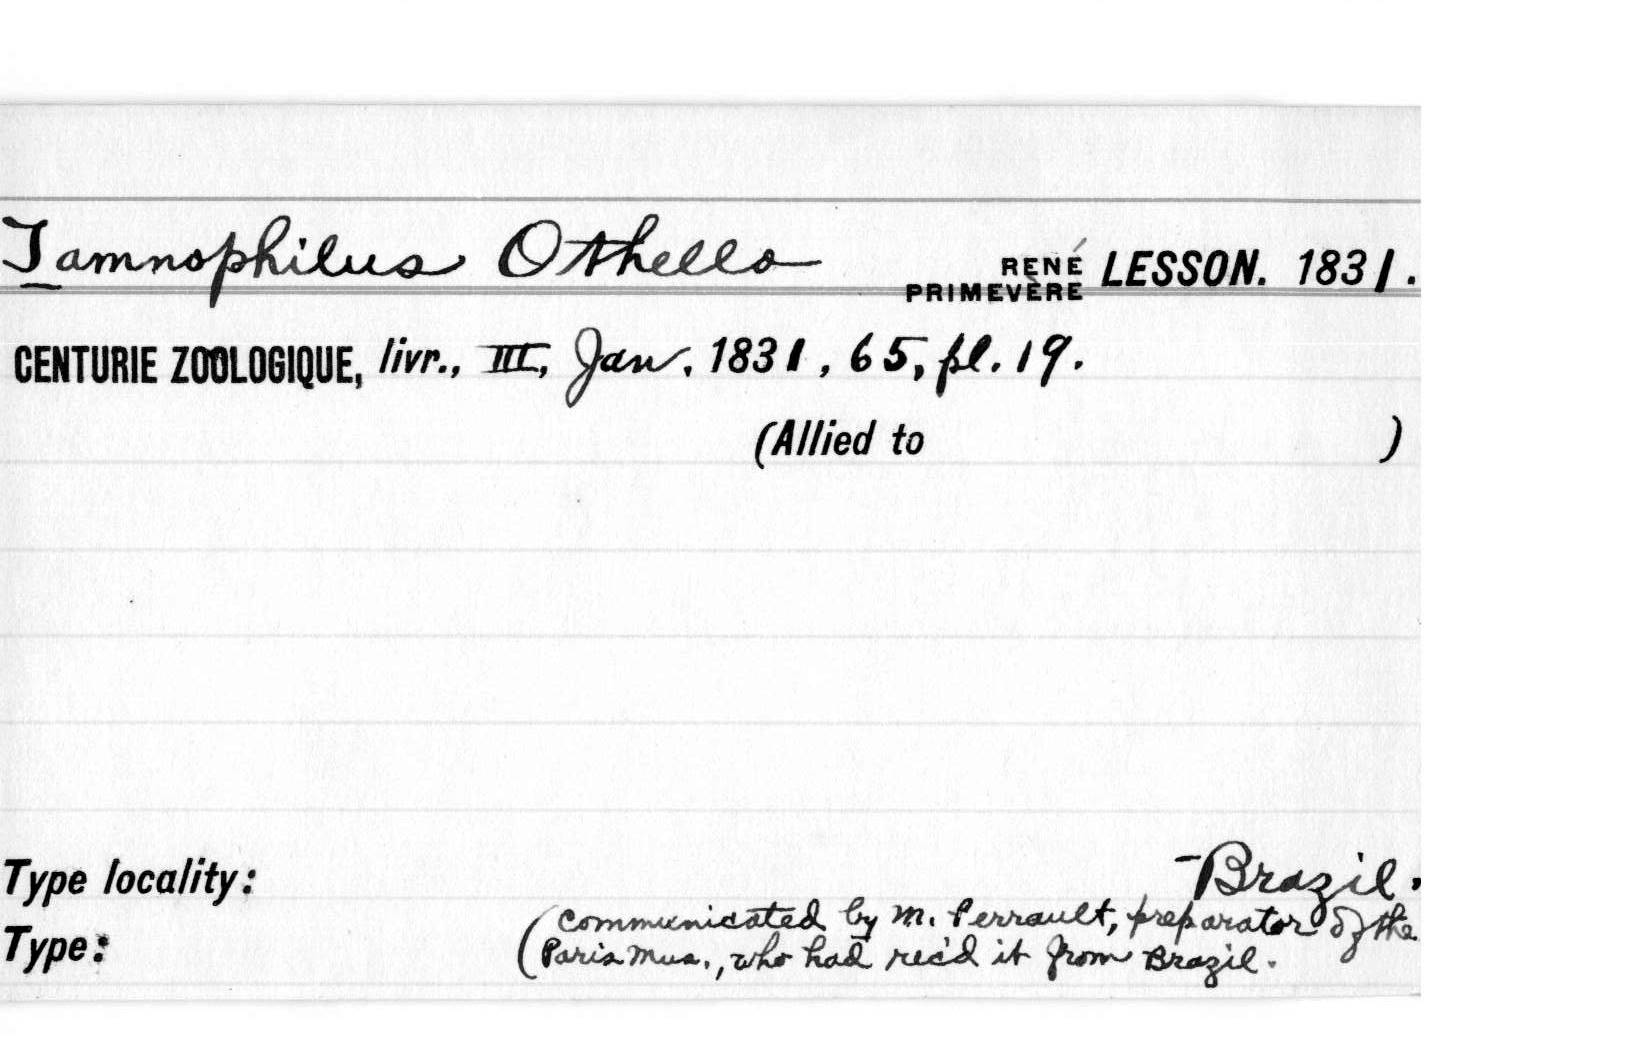 Tamnophilus Othello RENÉ PRIMEVÈRE LESSON. 1831.
CENTURIE ZOOLOGIQUE, livr., III, Jan. 1831, 65, pl. 19.
(Allied to )
Type locality: -Brazil.
(Communicated by M. Perrault, preparator of the
Type: Paris Mus., who had rec'd it from Brazil.